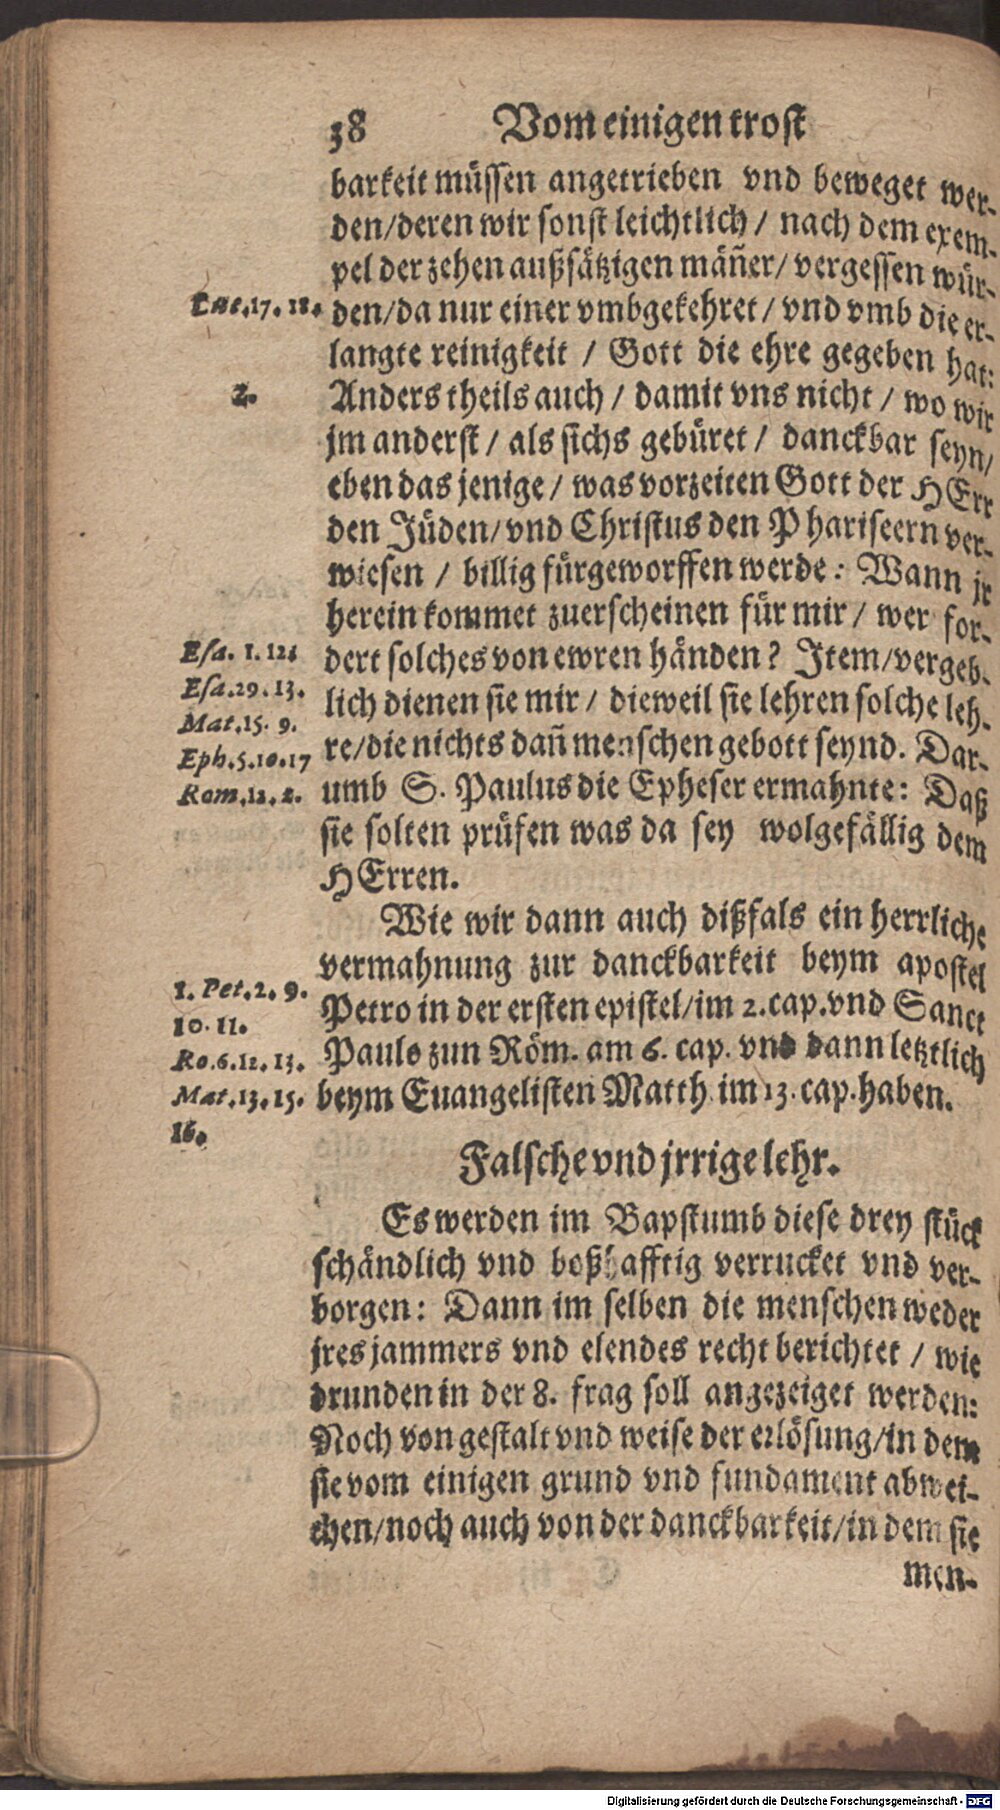 38 Vom einigen trost
barkeit müssen angetrieben vnd beweget wer-
den/deren wir sonst leichtlich / nach dem exem-
pel der zehen außsätzigen mäñer/ vergessen wür-
Luc.17. 18. den/da nur einer vmbgekehret/ vnd vmb die er-
langte reinigkeit / Gott die ehre gegeben hat:
2. Anders theils auch / damit vns nicht / wo wir
jm anderst / als sichs gebüret / danckbar seyn/
eben das jenige / was vorzeiten Gott der HErr
den Jüden/vnd Christus den Phariseern ver-
wiesen / billig fürgeworffen werde: Wann jr
herein kommet zuerscheinen für mir / wer for-
Esa. 1. 12. dert solches von ewren händen? Item/vergeb-
Esa.29.13. lich dienen sie mir / dieweil sie lehren solche leh-
Mat.15. 9. re/die nichts dañ menschen gebott seynd. Dar-
Eph.5.10.17
Rom.12.2. umb S. Paulus die Epheser ermahnte: Daß
sie solten prüfen was da sey wolgefällig dem
HErren.
Wie wir dann auch dißfals ein herrliche
vermahnung zur danckbarkeit beym apostel
1. Pet.2. 9. Petro in der ersten epistel/im 2.cap.vnd Sanct
10. 11.
Ro.6.12.13. Paulo zun Röm. am 6. cap. vnd dann letztlich
Mat.13.15. beym Euangelisten Matth. im 13. cap.haben.
16.
Falsche vnd jrrige lehr.
Es werden im Bapstumb diese drey stück
schändlich vnd boßhafftig verrucket vnd ver-
borgen: Dann im selben die menschen weder
jres jammers vnd elendes recht berichtet / wie
drunden in der 8. frag soll angezeiget werden:
Noch von gestalt vnd weise der erlösung/in dem
sie vom einigen grund vnd fundament abwei-
chen/noch auch von der danckbarkeit/in dem sie
men-
Digitalisierung gefördert durch die Deutsche Forschungsgemeinschaft - DFG